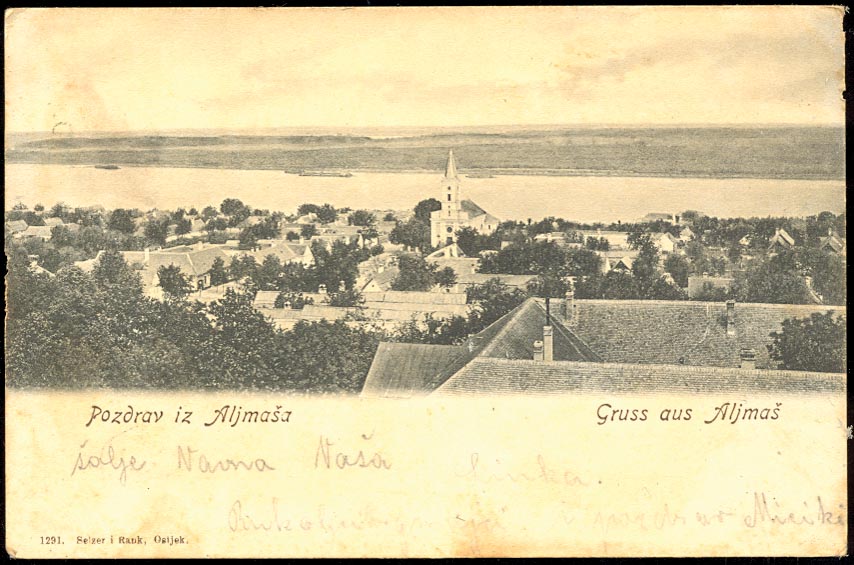 Pozdrav iz Aljmaša
Gruss aus Aljmaš
šalje Naša
i pozdrav Miciki
1291. Selzer i Rank, Osijek.